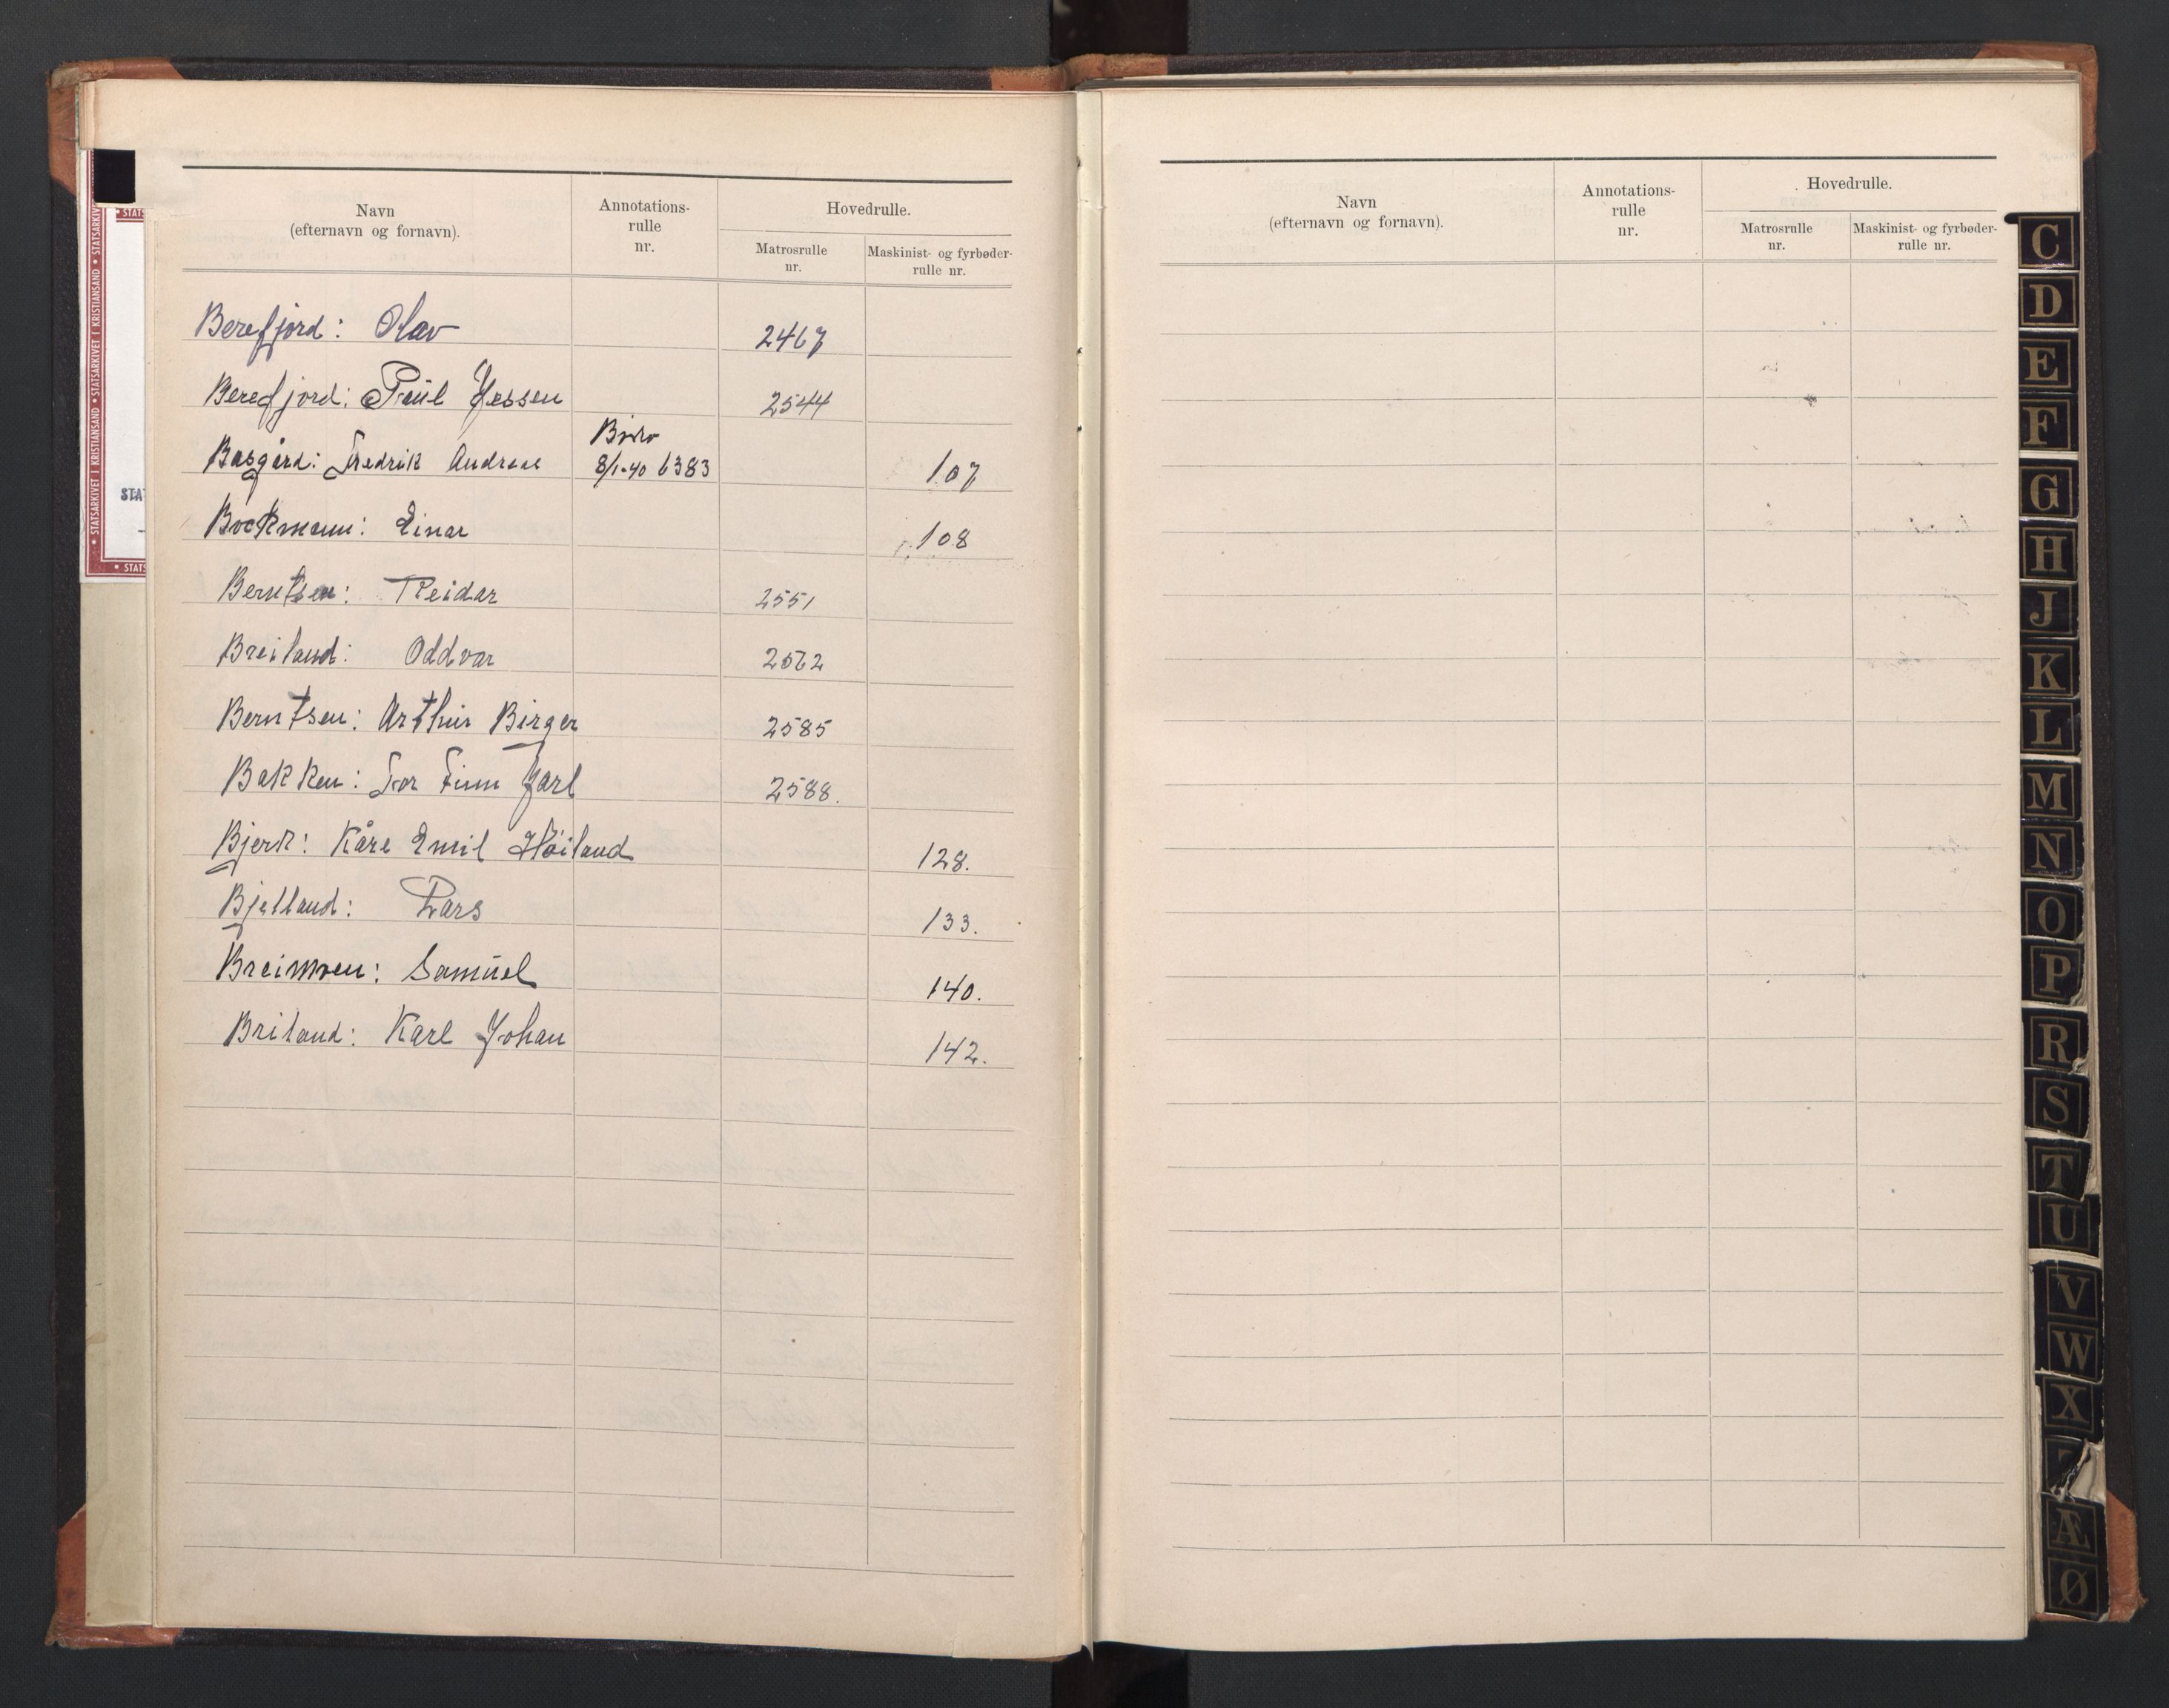 Navn
(efternavn og fornavn).
Annotations-
rulle
nr.
Hovedrulle.
Matrosrulle
nr.
Maskinist- og fyrbøder-
rulle nr.
Berefjord: Olav 2467
Berefjord: Paul Jessen 2544
Basgård: Fredrik Andreas 8/1-40 6383 107
Bockmann: Einar 108
Berntsen: Reidar 2551
Breiland: Oddvar 2562
Berntsen: Arthur Birger 2585
Bakken: Tor Finn Jarl 2588.
Bjerk: Kåre Emil Höiland 128.
Bjelland: Lars 133.
Breimoen: Samuel 140.
Briland: Karl Johan 142.
Navn
(efternavn og fornavn).
Annotations-
rulle
nr.
Hovedrulle.
Matrosrulle
nr.
Maskinist- og fyrbøder-
rulle nr.
C
D
E
F
G
H
J
K
L
M
N
O
P
R
S
T
U
V
W
X
Æ
Ø
STATSARKIVET I KRISTIANSAND • STATSARKIVET I KRISTIANSAND • STATSARKIV